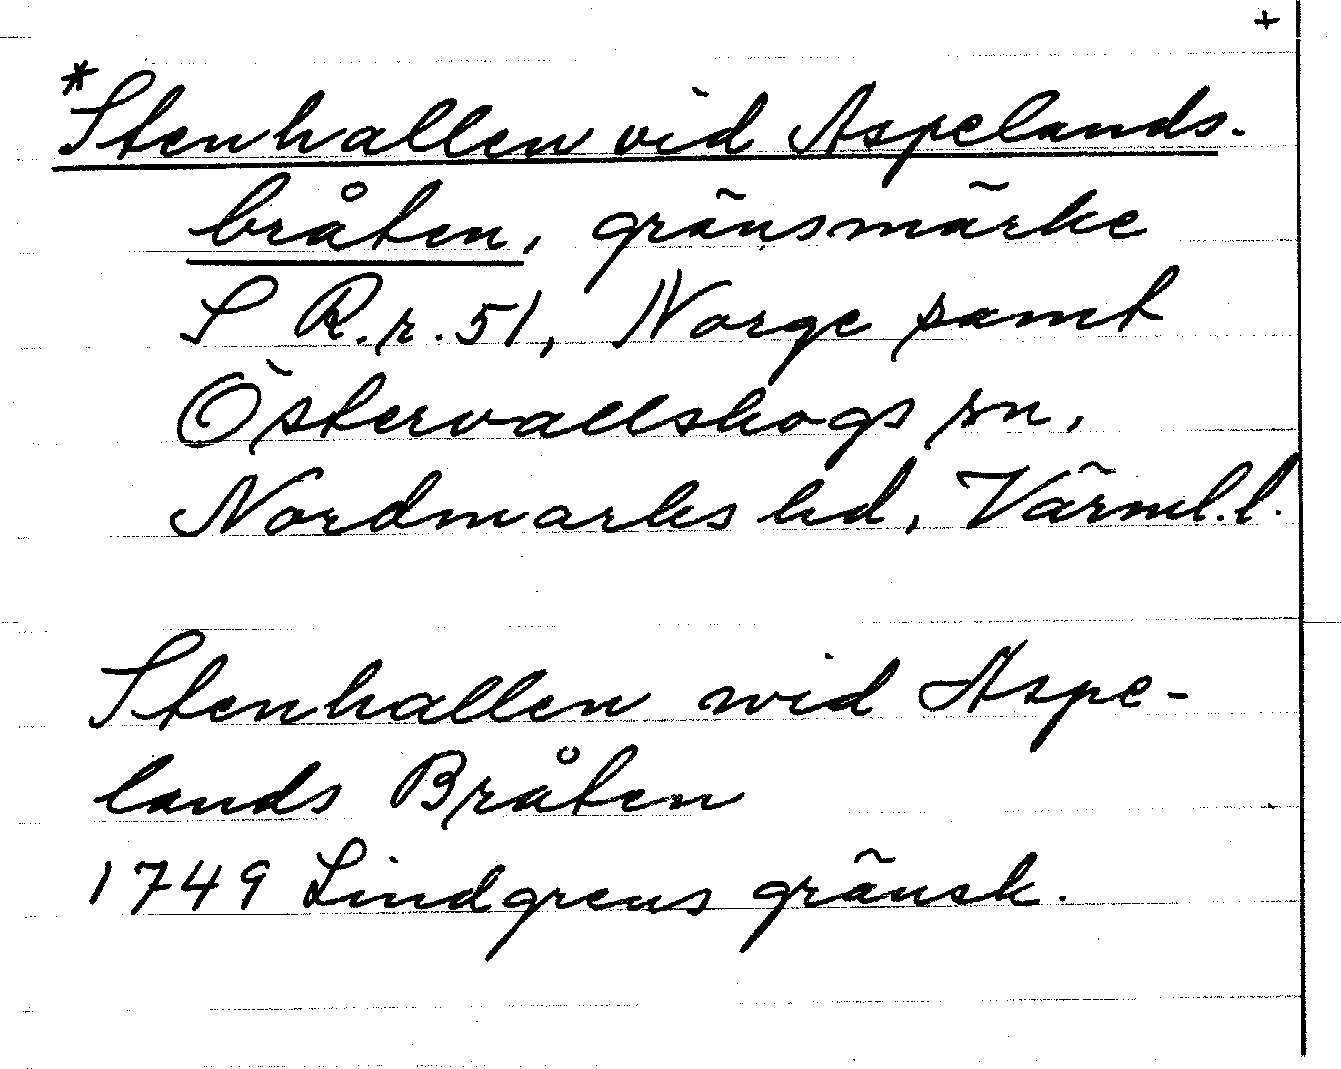 +
*Stenhallen vid Aspelands-
bråten, gränsmärke
S R.r. 51, Norge samt
Östervallskogs sn,
Nordmarks hd, Värml. l.
Stenhallen wid Aspe-
lands Bråten
1749 Lindgrens gränsk.